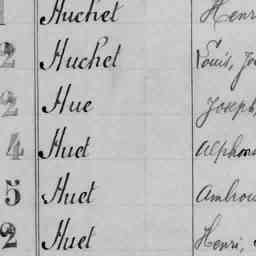 1 Huchet Henri
2 Huchet Louis, Jo
2 Hue Joseph,
4 Huet Alphon
5 Huet Ambroi
2 Huet Henri,